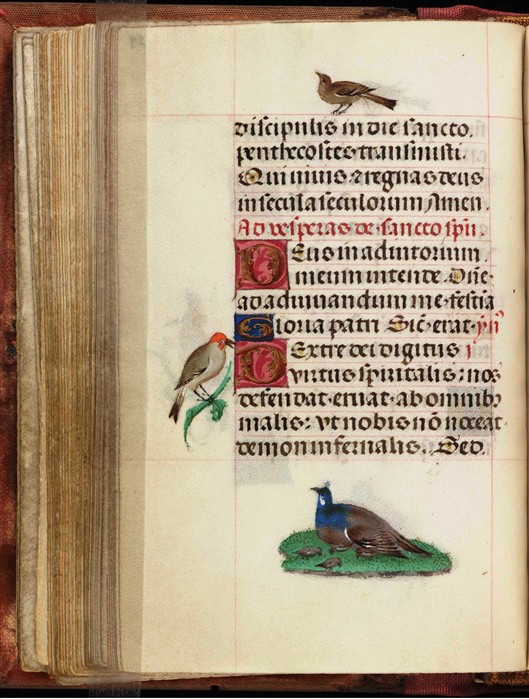 discipulis in die sancto.
penthecostes transmisti.
Qui vivis ⁊ regnas deus
in secula seculorum Amen.
Ad vesperas de·sancto spũ.
Deus in adiutorium
meum intende. Dñe·
ad adiuvandum me·festia
Gloria patri Sic·erat·ỹñ
Dextre dei digitus
virtus spiritalis: nos
defendat·eruat·ab omnibꝫ
malis: vt nobis nõ noceat
demon infernalis. Sed.